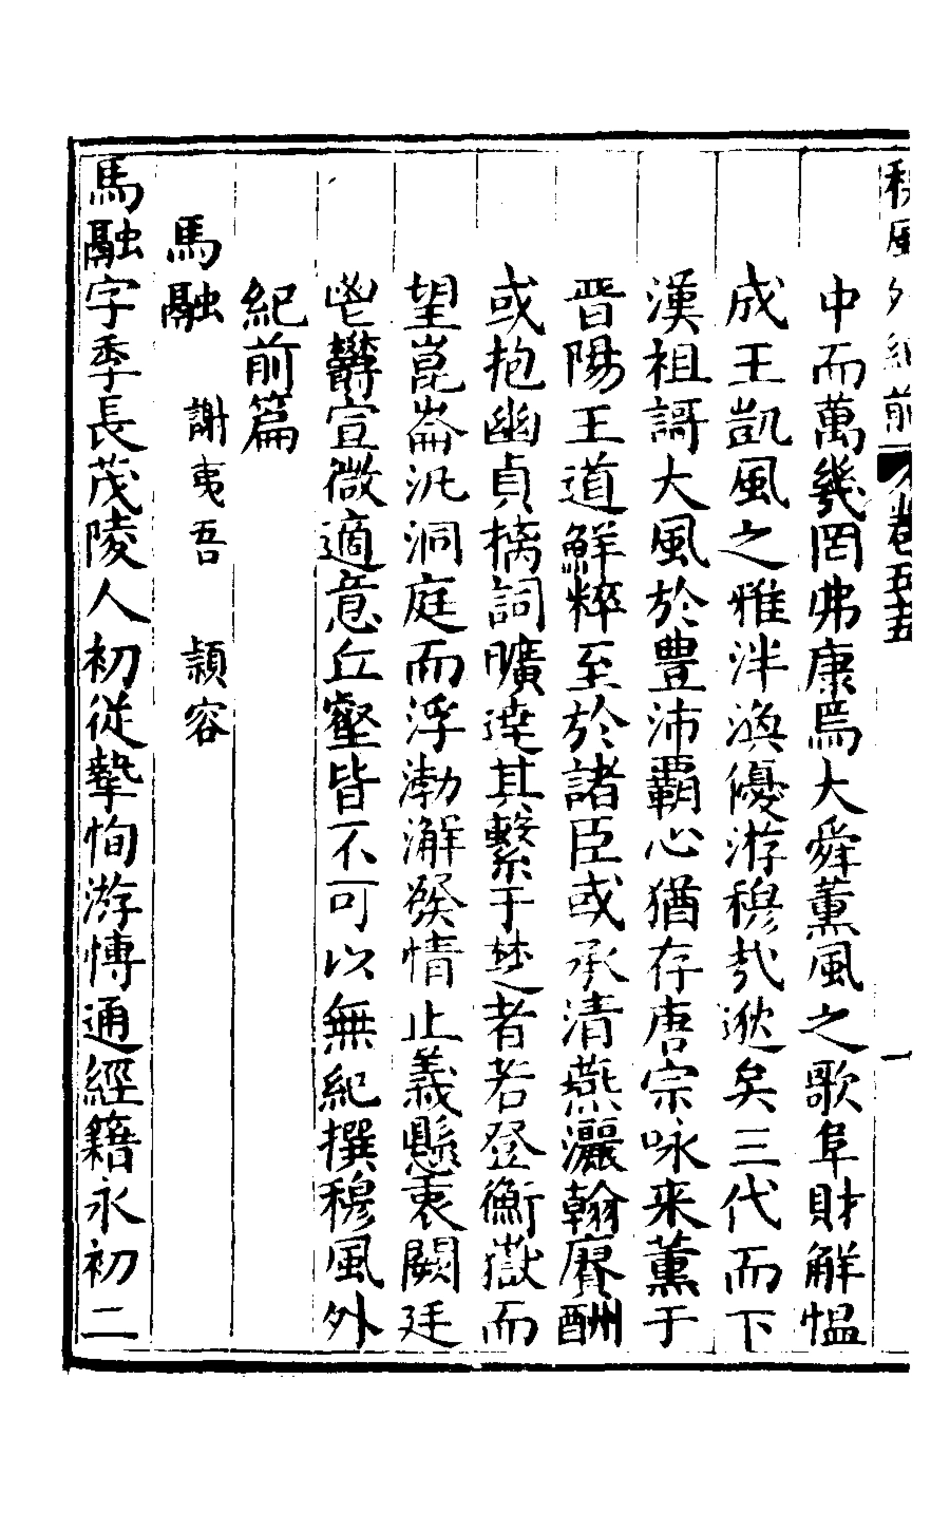 穆風外紀前 卷五十五 一
中而萬幾罔弗康焉大舜薰風之歌阜財解愠
成王凱風之雅泮渙優游穆哉逖矣三代而下
漢祖謌大風於豊沛覇心猶存唐宗咏来薰于
晋陽王道鮮粹至於諸臣或承清燕灑翰賡酬
或抱幽貞摛詞曠逵其繫于楚者若登衡嶽而
望崑崙汎洞庭而浮渤澥發情止義懸衷闕廷
鬯欝宣微適意丘壑皆不可以無紀撰穆風外
紀前篇
馬融 謝夷吾 頴容
馬融字季長茂陵人初従摯恂游愽通經籍永初二